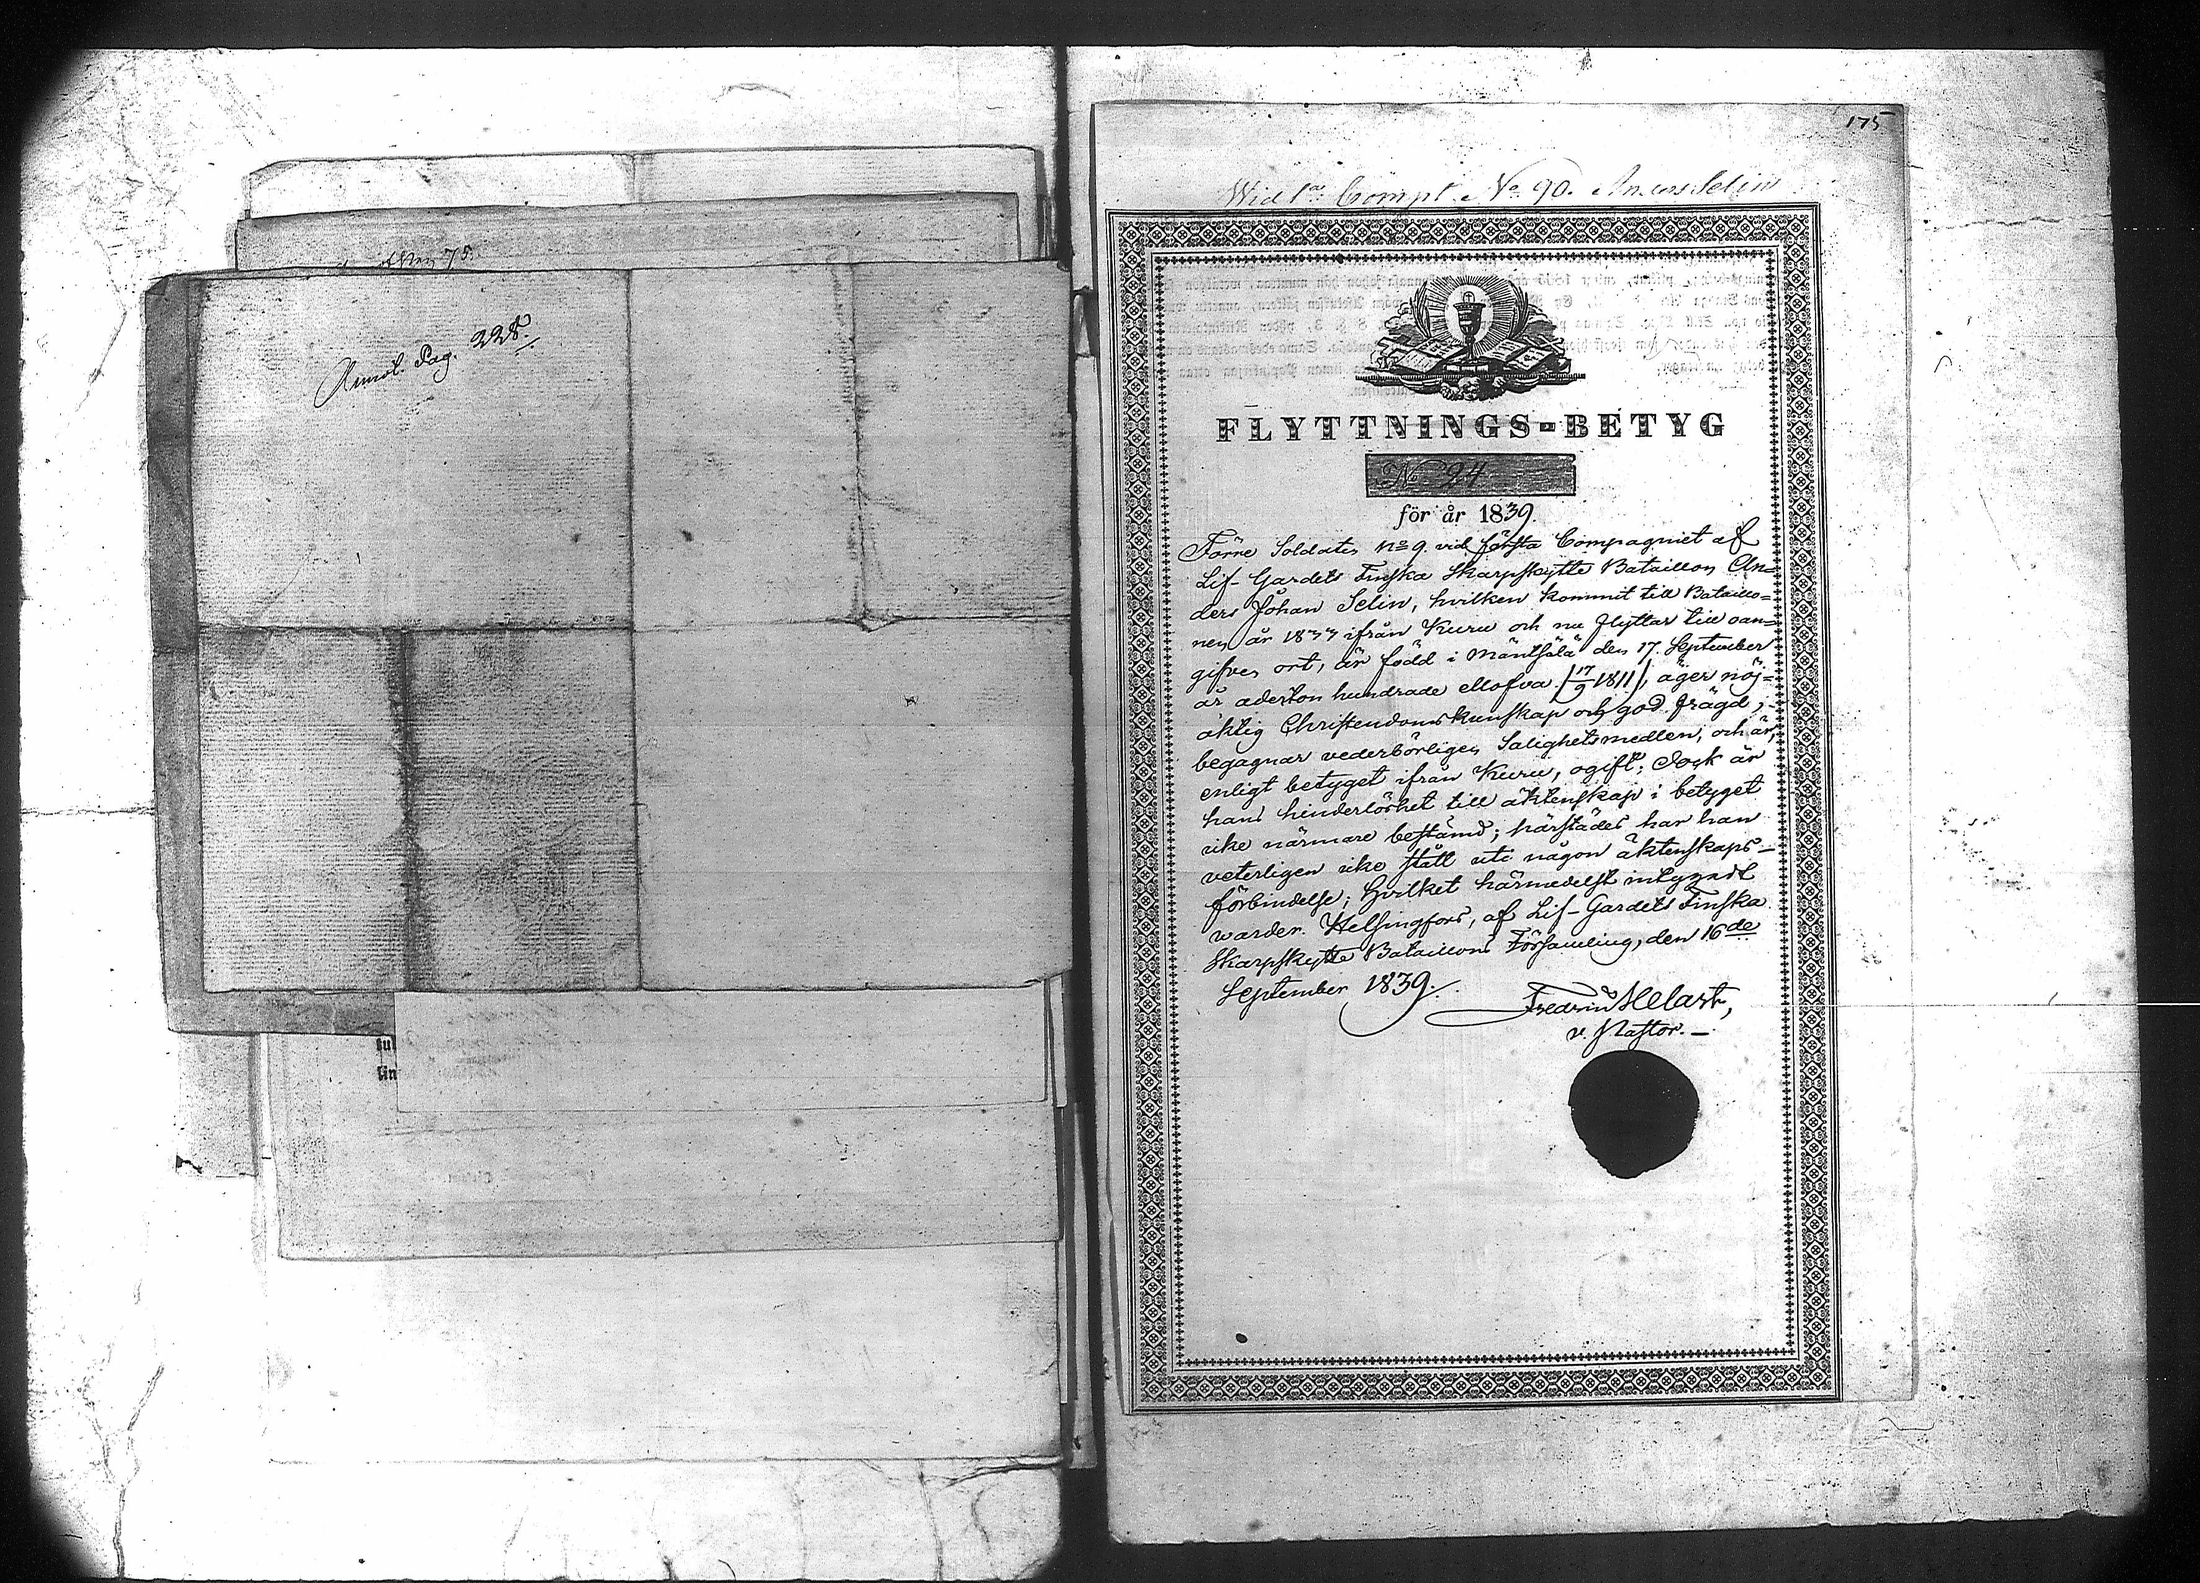 175
Wid 1a Compt. No 90. Anders Selin
No 75.
Pag. 228.
FLYTTNINGS-BETYG
No 24
för år 1839.
Förre Soldaten No 9 vid första Compagniet af
Lif-Gardets Finska Skarpskytte Bataillon An=
ders Johan Selin, hvilken kommit till Bataillo=
nen år 1833 ifrån Kuru och nu flyttar till oan=
gifven ort, är född i Mäntsälä den 17. September
år aderton hundrade ellofva (17/9 1811), äger nöj=
aktig Christendomskunskap och god frägd,
begagnar vederbörligen Salighetsmedlen, och är,
enligt betyget ifrån Kuru, ogift; Dock är
hans hinderlöshet till äktenskap i betyget
icke närmare bestämd; härstädes har han
veterligen icke stått uti någon äktenskaps-
förbindelse; Hvilket härmedelst intygadt
warder. Helsingfors, af Lif-Gardets Finska
Skarpskytte Bataillons Församling, den 16de
September 1839.
Helart,
v. Pastor.
sul
lin